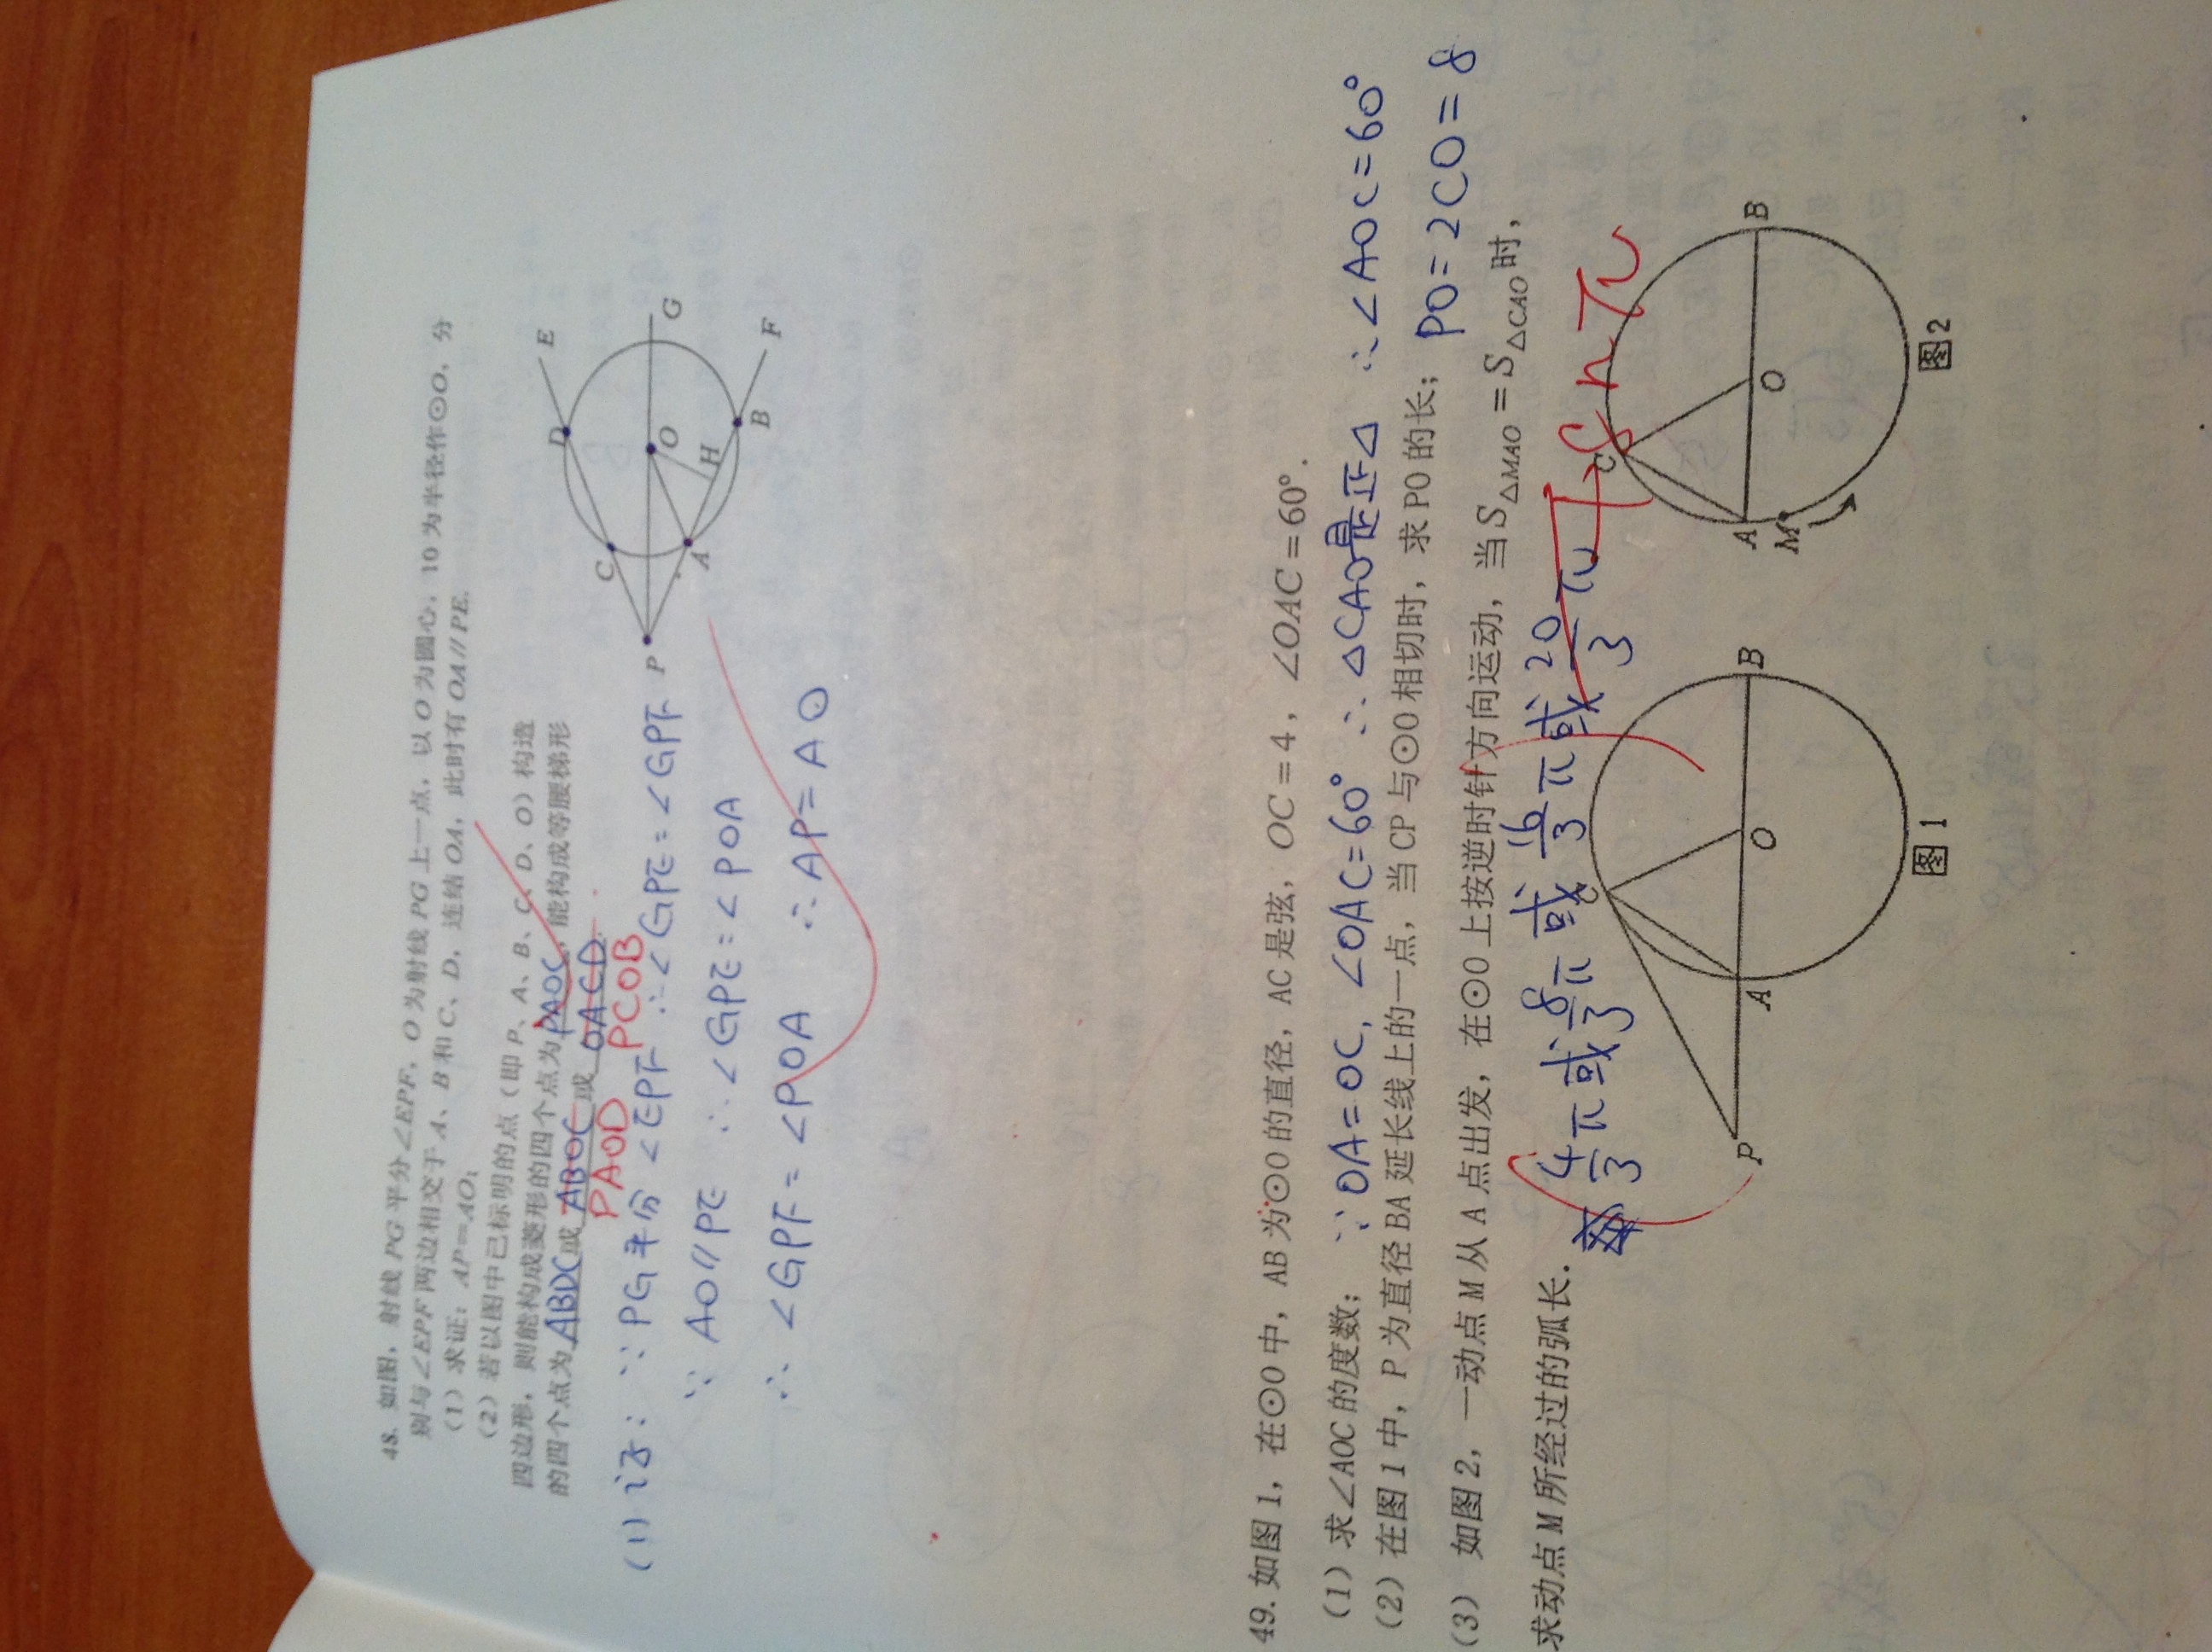 48. 如图，射线 PG 平分∠EPF，O 为射线 PG 上一点，以 O 为圆心，10 为半径作⊙O，分
别与∠EPF 两边相交于 A、B 和 C、D，连结 OA，此时有 OA∥PE.
（1）求证：AP=AO；
（2）若以图中已标明的点（即 P、A、B、C、D、O）构造
四边形，则能构成菱形的四个点为 PAOC，能构成等腰梯形
的四个点为 ABDC或 ABOC 或 OACD.
PAOD PCOB
(1) 证：∵ PG平分∠EPF ∴∠GPE=∠GPF
∵ AO∥PE ∴∠GPE=∠POA
∴ ∠GPF=∠POA ∴AP=AO
D E
C
P O G
A H
B F
49. 如图 1，在⊙O 中，AB 为⊙O 的直径，AC 是弦，OC=4，∠OAC=60°.
（1）求∠AOC 的度数； ∵OA=OC, ∠OAC=60° ∴△CAO是正△ ∴∠AOC=60°
（2）在图 1 中，P 为直径 BA 延长线上的一点，当 CP 与⊙O 相切时，求 PO 的长； PO=2CO=8
（3） 如图 2，一动点 M 从 A 点出发，在⊙O 上按逆时针方向运动，当 S△MAO=S△CAO 时，
求动点 M 所经过的弧长. 4/3π或8/3π或16/3π或20/3π +8nπ
C C
P A O B A O B
M
图 1 图2